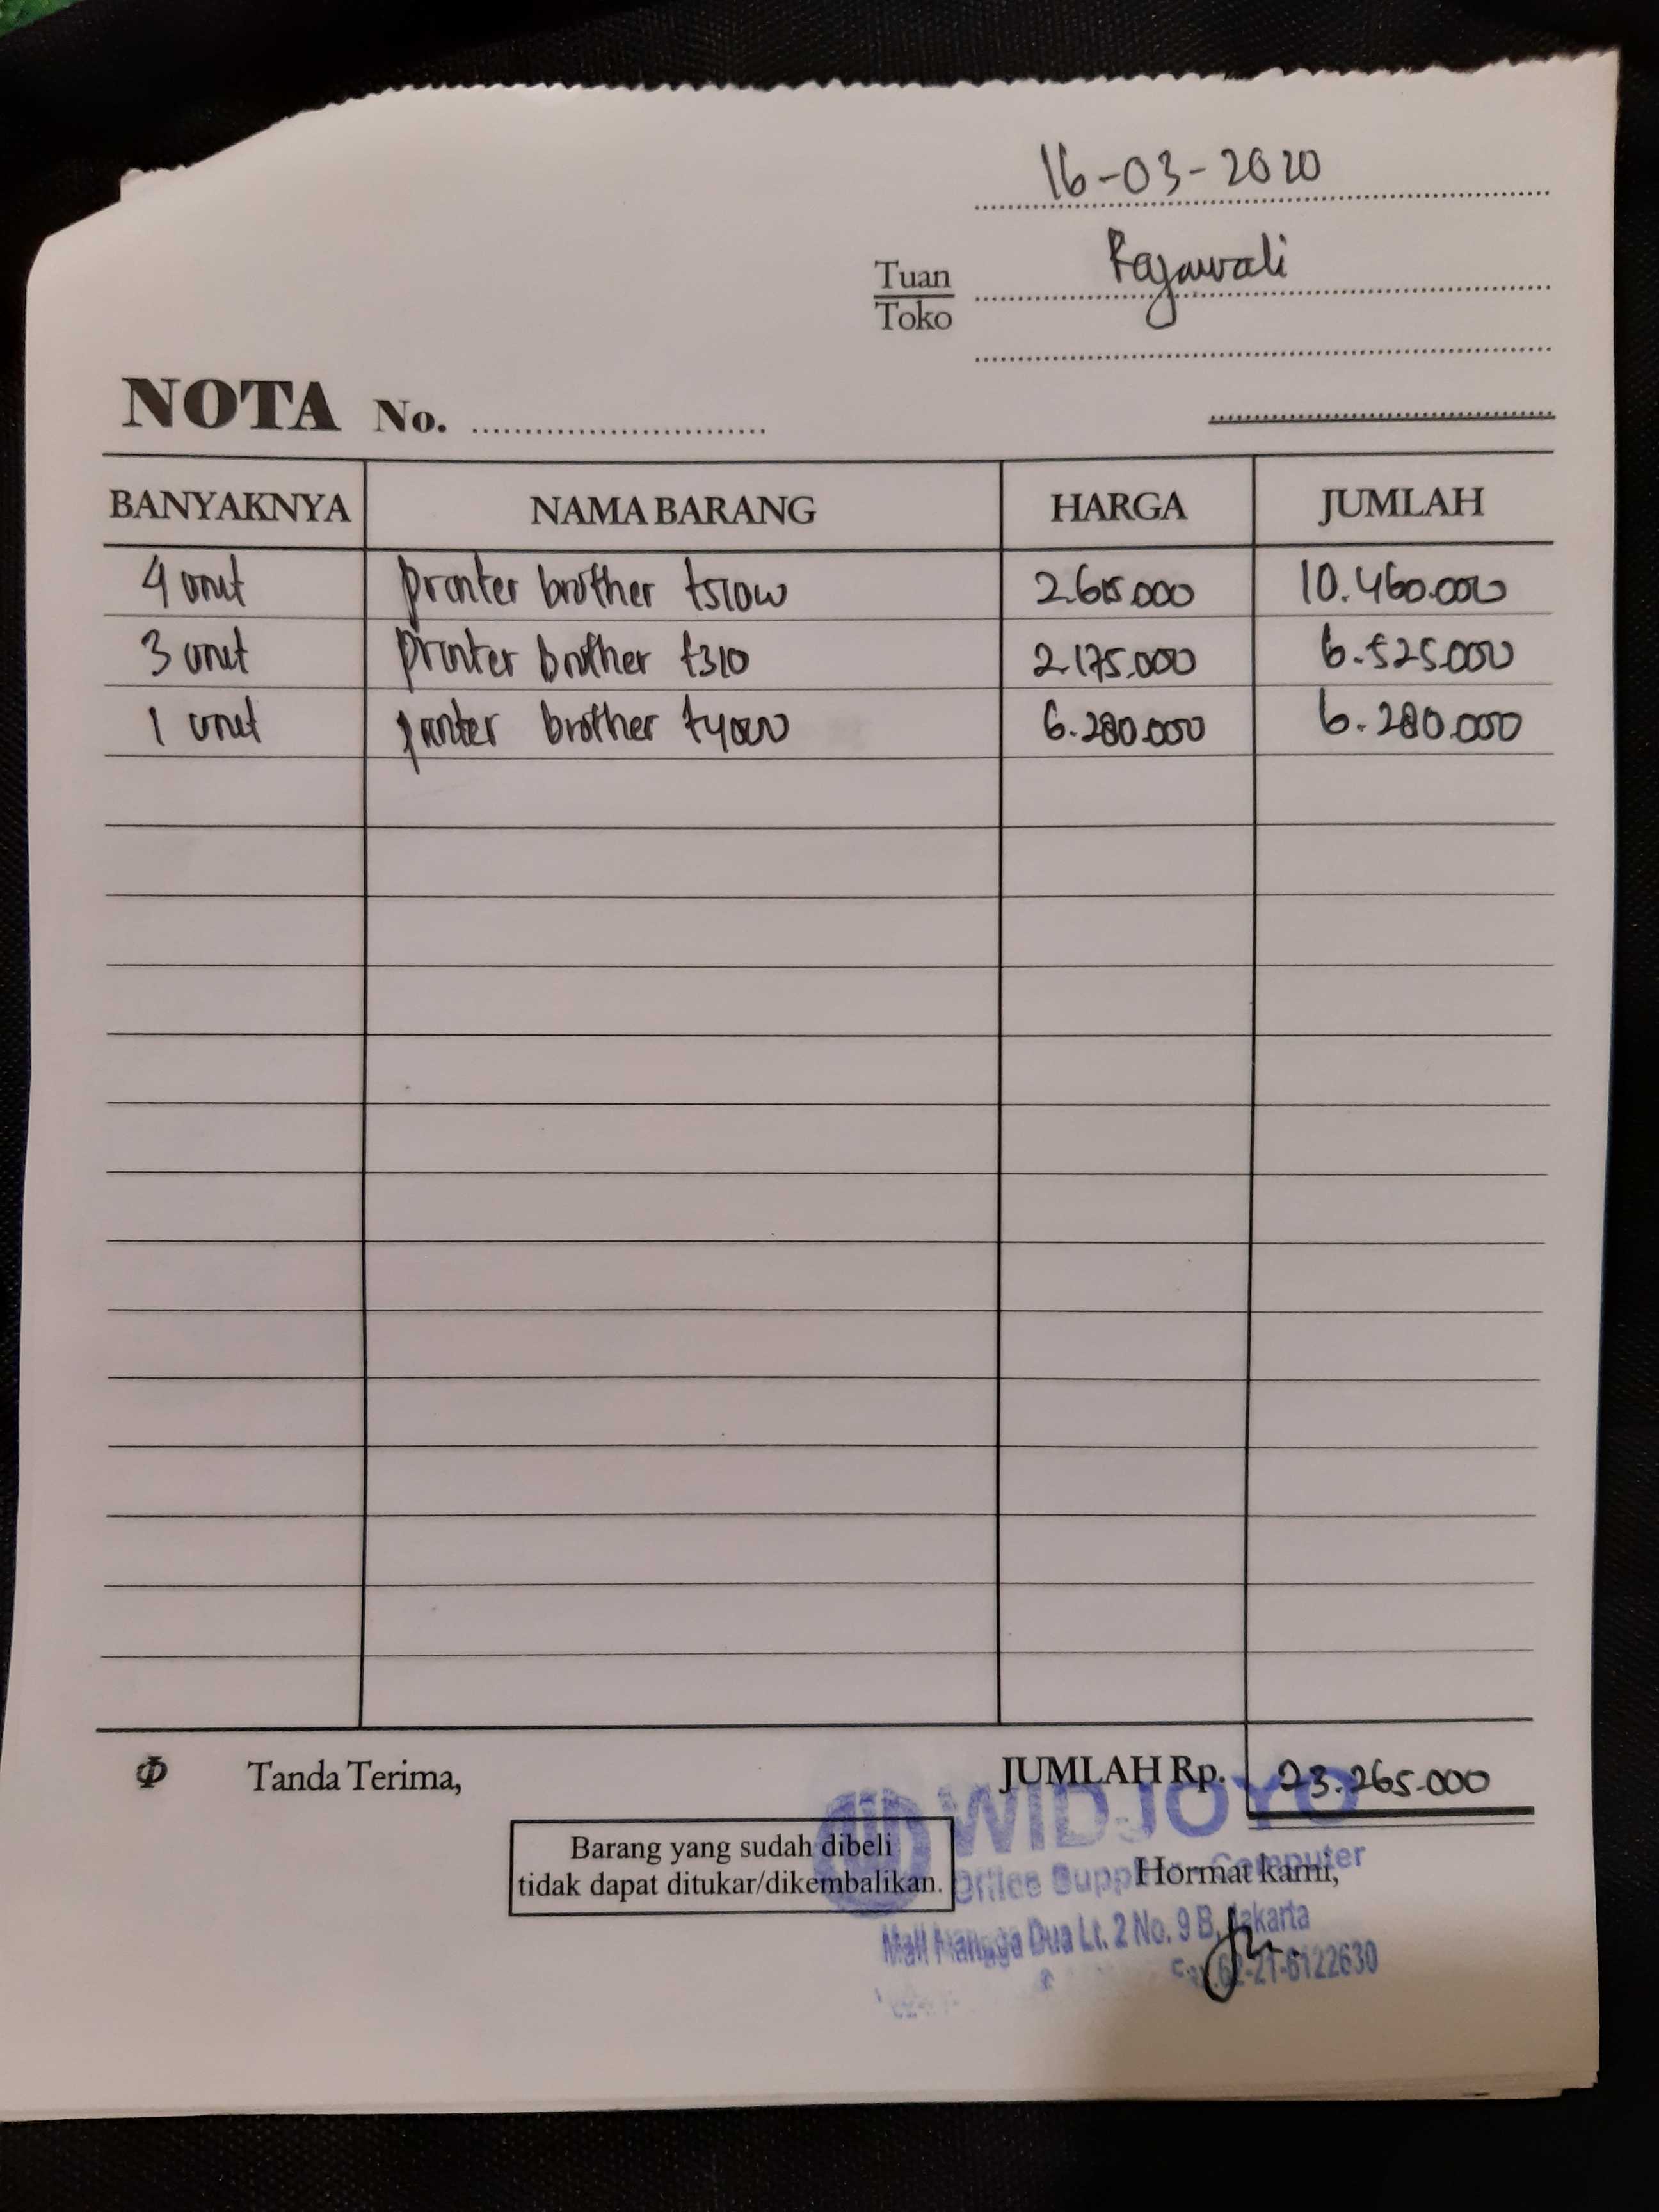 16-03-2020
Tuan
Toko
Rajawali
NOTA No.
BANYAKNYA NAMA BARANG HARGA JUMLAH
4 unit printer brother t510w 2.615.000 10.460.000
3 unit printer brother t310 2.175.000 6.525.000
1 unit printer brother t4000 6.280.000 6.280.000
Φ Tanda Terima, JUMLAH Rp. 23.265.000
WIDJOYO
Barang yang sudah dibeli
tidak dapat ditukar/dikembalikan.
Hormat kami,
Office Supplies Computer
Mall Mangga Dua Lt. 2 No. 9 B, Jakarta
Fax.62-21-6122630